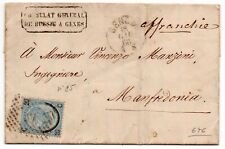 CONSULAT GENERAL
DE RUSSIE A GENES
affranchie
A Monsieur Vincent Manzoni
Ingegnere
Manfredonia